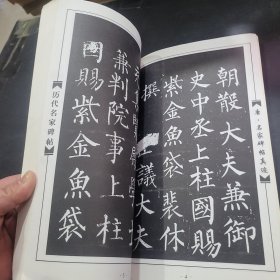 朝散大夫兼御
史中丞上柱國賜
紫金魚袋裴休
撰
議大夫
兼判院事上柱
國賜紫金魚袋
历代名家碑帖